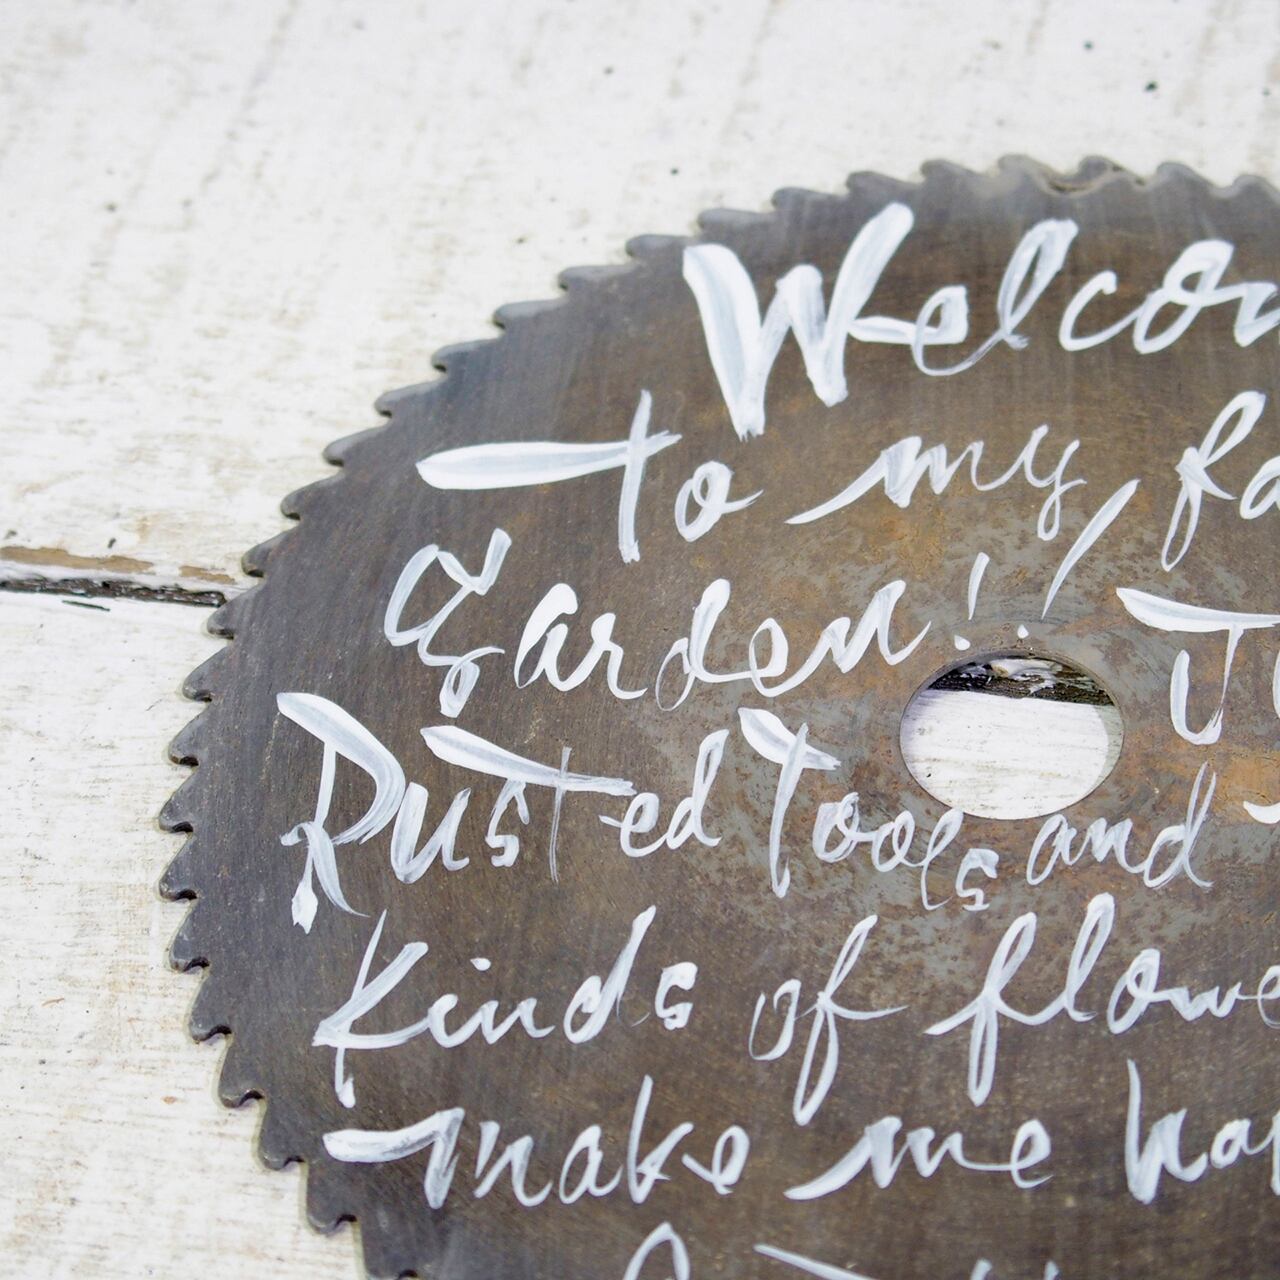 Welcom
to my fa
garden!! J
Rusted Tools and
Kinds of flowe
make me hap